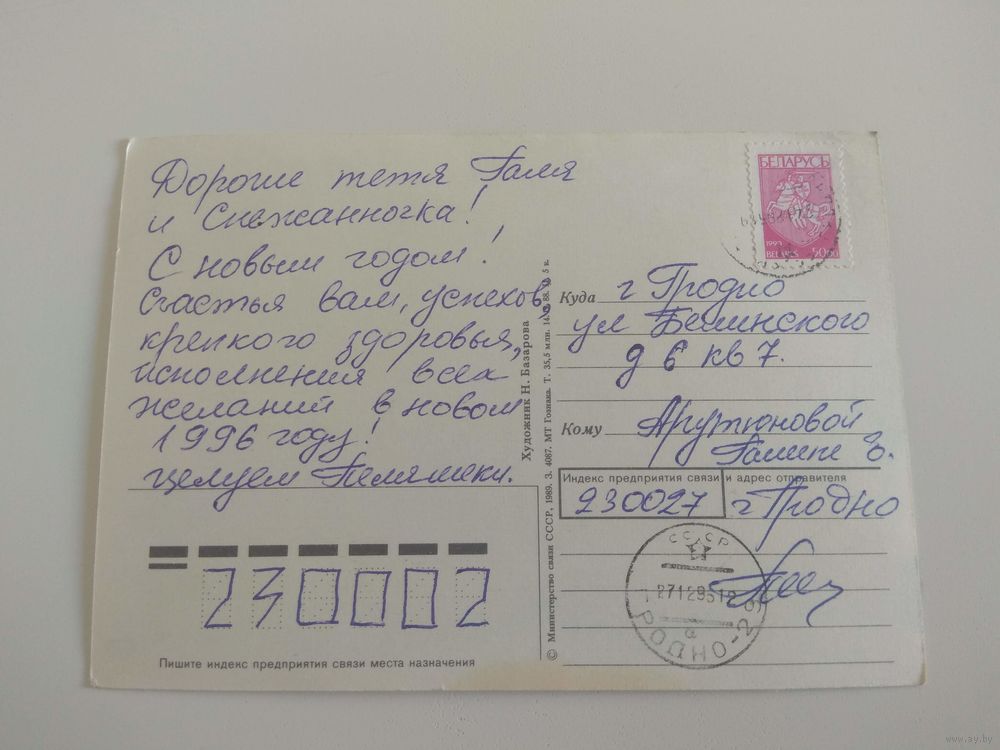 Дорогие тетя Галя
и Снежанночка!
С новым годом!
Счастья вам, успехов,
крепкого здоровья,
исполнения всех
желаний в новом
1996 году!
целуем
Пишите индекс предприятия связи места назначения
230002
Художник Н. Базарова
© Министерство связи СССР, 1989. З. 4087. МТ Гознака. Т. 35,5 млн.
БЕЛАРУСЬ
1993
BELARUS 50.00
Куда г Гродно
ул Белинского
д 6 кв 7.
Кому Арутюновой
Галине
Индекс предприятия связи и адрес отправителя
230027 г Гродно
СССР
РОДНО-29
www.ay.by